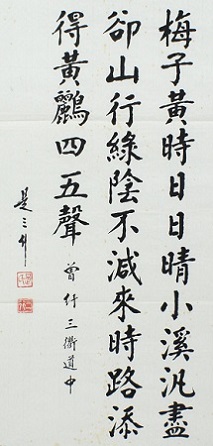 梅子黃時日日晴小溪汎盡
卻山行綠陰不減來時路添
得黃鸝四五聲
曾什三衢道中